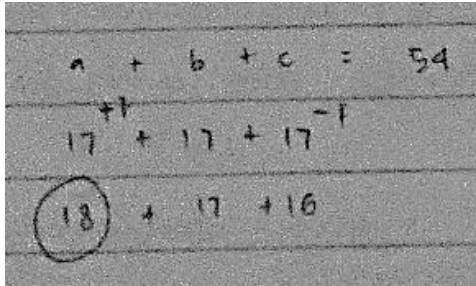 a + b + c = 54
17^{+1} + 17 + 17^{-1}
18 + 17 + 16